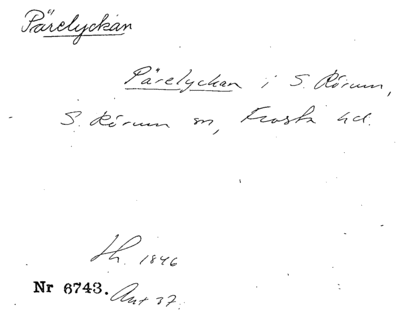 Pärelyckan
Pärelyckan i S. Rörum,
S. Rörum sn, Frosta hd.
Lh. 1846
Nr 6743. Ant 37.